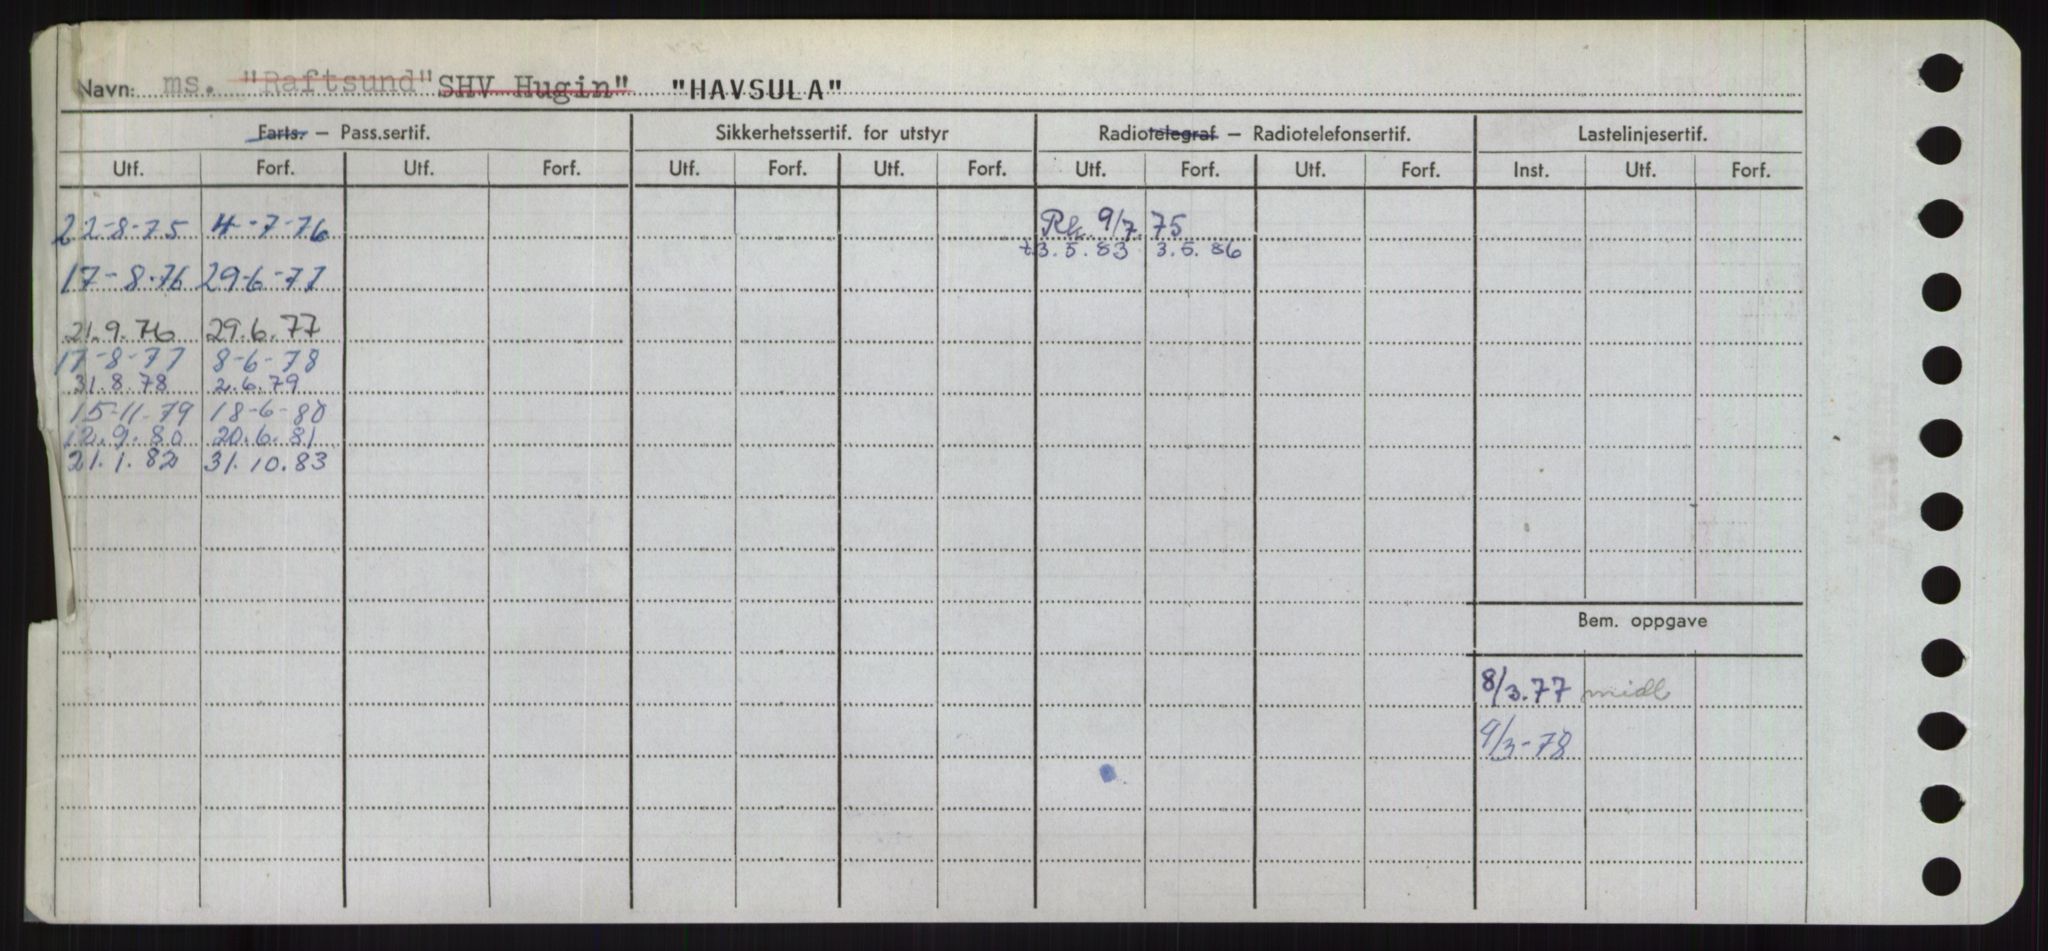 Navn: ms. "Raftsund" SHV Hugin" "HAVSULA"
Farts. – Pass.sertif. Sikkerhetssertif. for utstyr Radiotelegraf – Radiotelefonsertif. Lastelinjesertif.
Utf. Forf. Utf. Forf. Utf. Forf. Utf. Forf. Utf. Forf. Utf. Forf. Inst. Utf. Forf.
22-8-75 4-7-76 9/7 75
3.5.83 3.5.86
17-8-76 29-6-77
21.9.76 29.6.77
17-8-77 8-6-78
31.8.78 2.6.79
15-11-79 18-6-80
12.9.80 20.6.81
21.1.82 31.10.83
Bem. oppgave
8/3.77 midl
9/3-78